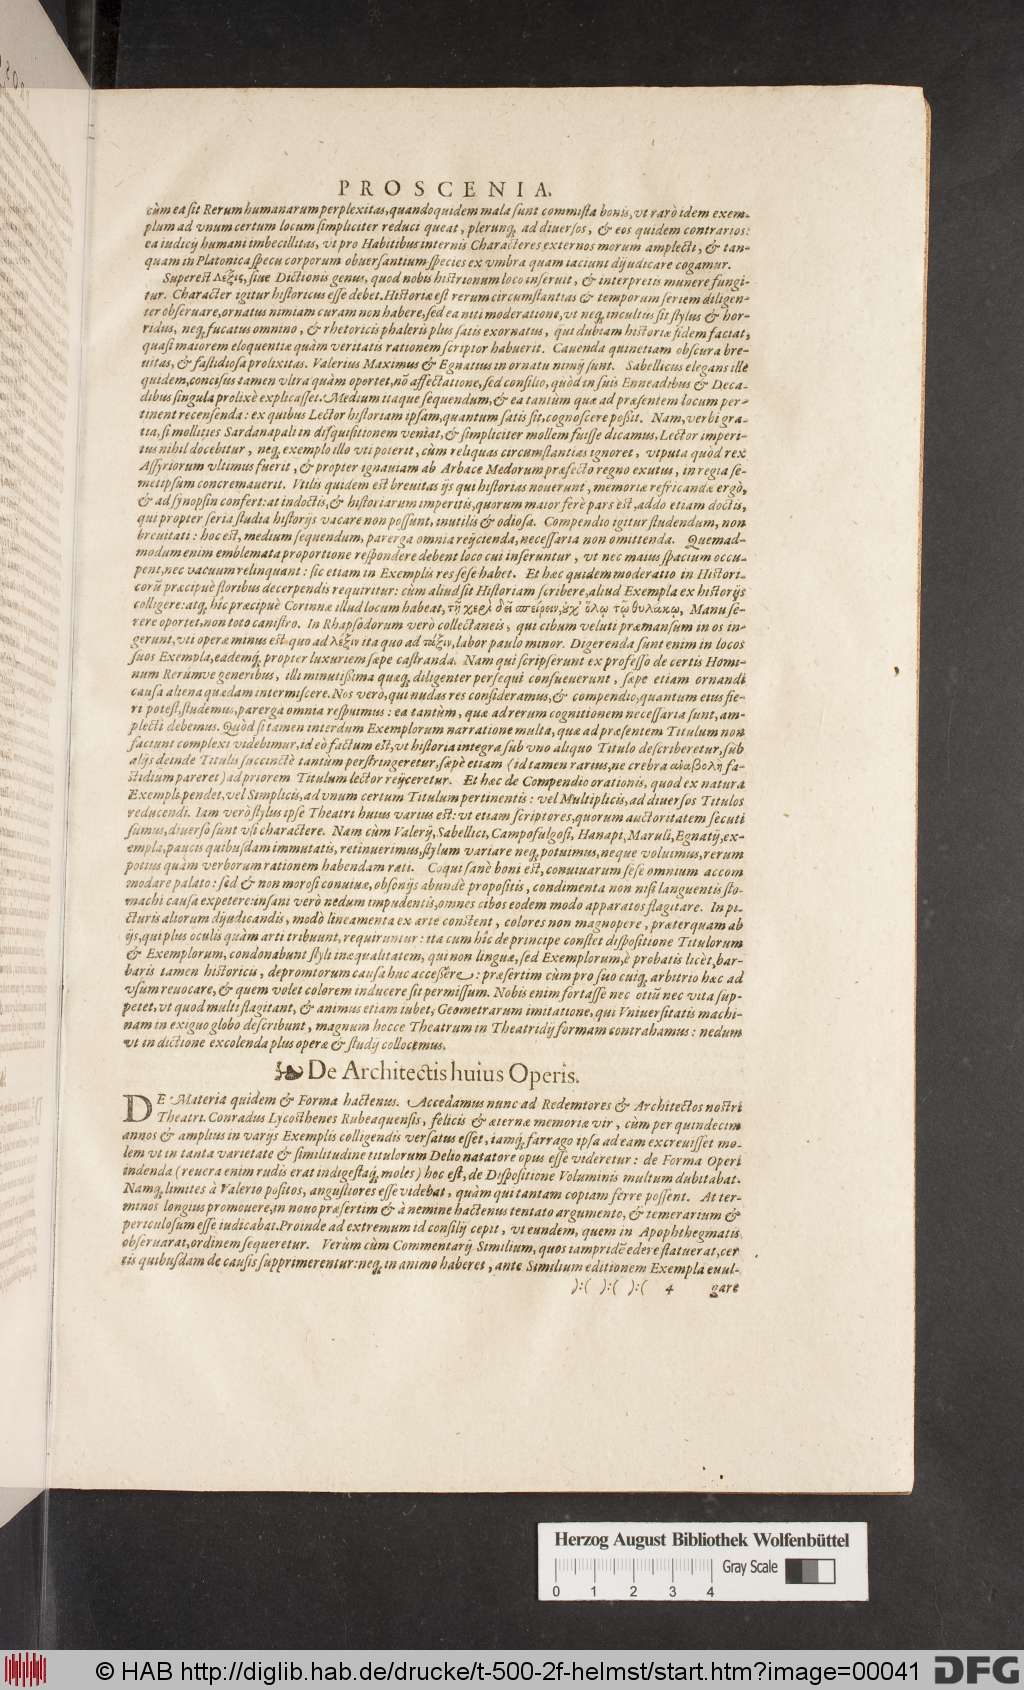 PROSCENIA.
cùm ea sit Rerum humanarum perplexitas, quandoquidem mala sunt commista bonis, vt rarò idem exem-
plum ad vnum certum locum simpliciter reduci queat, plerunq; ad diuersos, & eos quidem contrarios:
ea iudicij humani imbecillitas, vt pro Habitibus internis Characteres externos morum amplecti, & tan-
quam in Platonica specu corporum obuersantium species ex vmbra quam iaciunt dijudicare cogamur.
Superest Λέξις, siue Dictionis genus, quod nobis histrionum loco inseruit, & interpretis munere fungi-
tur. Character igitur historicus esse debet. Historiæ est rerum circumstantias & temporum seriem diligen-
ter obseruare, ornatus nimiam curam non habere, sed ea niti moderatione, vt neq; incultus sit stylus & hor-
ridus, neq; fucatus omnino, & rhetoricis phaleris plus satis exornatus, qui dubiam historiæ fidem faciat,
quasi maiorem eloquentiæ quàm veritatis rationem scriptor habuerit. Cauenda quinetiam obscura bre-
uitas, & fastidiosa prolixitas. Valerius Maximus & Egnatius in ornatu nimij sunt. Sabellicus elegans ille
quidem, concisus tamen vltra quàm oportet, nõ affectatione, sed consilio, quòd in suis Enneadibus & Deca-
dibus singula prolixè explicasset. Medium itaque sequendum, & ea tantùm quæ ad præsentem locum per-
tinent recensenda: ex quibus Lector historiam ipsam, quantum satis sit, cognoscere possit. Nam, verbi gra-
tia, si mollities Sardanapali in disquisitionem veniat, & simpliciter mollem fuisse dicamus, Lector imperi-
tus nihil docebitur, neq; exemplo illo vti poterit, cùm reliquas circumstantias ignoret, vtputa quòd rex
Assyriorum vltimus fuerit, & propter ignauiam ab Arbace Medorum præfecto regno exutus, in regia se-
metipsum concremauerit. Vtilis quidem est breuitas ijs qui historias nouerunt, memoriæ refricandæ ergò,
& ad synopsin confert: at indoctis, & historiarum imperitis, quorum maior ferè pars est, addo etiam doctis,
qui propter seria studia historijs vacare non possunt, inutilis & odiosa. Compendio igitur studendum, non
breuitati: hoc est, medium sequendum, parerga omnia reijcienda, necessaria non omittenda. Quemad-
modum enim emblemata proportione respondere debent loco cui inseruntur, vt nec maius spacium occu-
pent, nec vacuum relinquant: sic etiam in Exemplis res sese habet. Et hæc quidem moderatio in Histori-
corũ præcipuè floribus decerpendis requiritur: cùm aliud sit Historiam scribere, aliud Exempla ex historijs
colligere: atq; hîc præcipuè Corinnæ illud locum habeat, τῇ χειρὶ δεῖ σπείρειν, ἐχ' ὅλῳ τῷ θυλάκῳ, Manu se-
rere oportet, non toto canistro. In Rhapsodorum verò collectaneis, qui cibum veluti præmansum in os in-
gerunt, vti operæ minus est quo ad λέξιν ita quo ad τάξιν, labor paulo minor. Digerenda sunt enim in locos
suos Exempla, eademq; propter luxuriem sæpe castranda. Nam qui scripserunt ex professo de certis Homi-
num Rerúmve generibus, illi minutissima quæq; diligenter persequi consueuerunt, sæpe etiam ornandi
causa aliena quædam intermiscere. Nos verò, qui nudas res consideramus, & compendio, quantum eius fie-
ri potest, studemus, parerga omnia respuimus: ea tantùm, quæ ad rerum cognitionem necessaria sunt, am-
plecti debemus. Quòd si tamen interdum Exemplorum narratione multa, quæ ad præsentem Titulum non
faciunt complexi videbimur, id eò factum est, vt historia integra sub vno aliquo Titulo describeretur, sub
alijs deinde Titulis succinctè tantùm perstringeretur, sæpè etiam (id tamen rarius, ne crebra ἀναβολὴ fa-
stidium pareret) ad priorem Titulum lector reijceretur. Et hæc de Compendio orationis, quod ex natura
Exempli pendet, vel Simplicis, ad vnum certum Titulum pertinentis: vel Multiplicis, ad diuersos Titulos
reducendi. Iam verò stylus ipse Theatri huius varius est: vt etiam scriptores, quorum auctoritatem secuti
sumus, diuerso sunt vsi charactere. Nam cùm Valerij, Sabellici, Campofulgosi, Hanapi, Maruli, Egnatij, ex-
empla, paucis quibusdam immutatis, retinuerimus, stylum variare neq; potuimus, neque voluimus, rerum
potius quàm verborum rationem habendam rati. Coqui sanè boni est, conuiuarum sese omnium accom
modare palato: sed & non morosi conuiuæ, obsonijs abundè propositis, condimenta non nisi languentis sto-
machi causa expetere: insani verò nedum impudentis, omnes cibos eodem modo apparatos flagitare. In pi-
cturis aliorum dijudicandis, modò lineamenta ex arte constent, colores non magnopere, præterquam ab
ijs, qui plus oculis quàm arti tribuunt, requiruntur: ita cum hîc de principe constet dispositione Titulorum
& Exemplorum, condonabunt styli inæqualitatem, qui non linguæ, sed Exemplorum, è probatis licèt, bar-
baris tamen historicis, depromtorum causa huc accessére: præsertim cùm pro suo cuiq; arbitrio hæc ad
vsum reuocare, & quem volet colorem inducere sit permissum. Nobis enim fortasse nec otiũ nec vita sup-
petet, vt quod multi flagitant, & animus etiam iubet, Geometrarum imitatione, qui Vniuersitatis machi-
nam in exiguo globo describunt, magnum hocce Theatrum in Theatridij formam contrahamus: nedum
vt in dictione excolenda plus operæ & studij collocemus.
De Architectis huius Operis.
DE Materia quidem & Forma hactenus. Accedamus nunc ad Redemtores & Architectos nostri
Theatri. Conradus Lycosthenes Rubeaquensis, felicis & æternæ memoriæ vir, cùm per quindecim
annos & amplius in varijs Exemplis colligendis versatus esset, iamq; farrago ipsa ad eam excreuisset mo-
lem vt in tanta varietate & similitudine titulorum Delio natatore opus esse videretur: de Forma Operi
indenda (reuera enim rudis erat indigestaq; moles) hoc est, de Dispositione Voluminis multum dubitabat.
Namq; limites à Valerio positos, angustiores esse videbat, quàm qui tantam copiam ferre possent. At ter-
minos longius promouere, in nouo præsertim & à nemine hactenus tentato argumento, & temerarium &
periculosum esse iudicabat. Proinde ad extremum id consilij cepit, vt eundem, quem in Apophthegmatis
obseruarat, ordinem sequeretur. Verùm cùm Commentarij Similium, quos iampridẽ edere statuerat, cer
tis quibusdam de causis supprimerentur: neq; in animo haberet, ante Similium editionem Exempla euul-
):( ):( ):( 4 gare
Herzog August Bibliothek Wolfenbüttel
0 1 2 3 4 Gray Scale
© HAB http://diglib.hab.de/drucke/t-500-2f-helmst/start.htm?image=00041 DFG